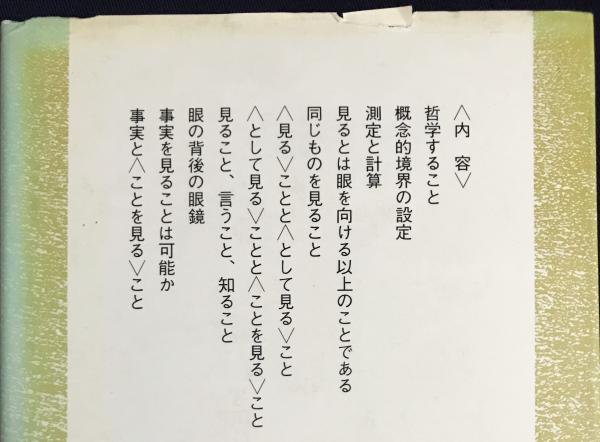 〈内　容〉
哲学すること
概念的境界の設定
測定と計算
見るとは眼を向ける以上のことである
同じものを見ること
〈見る〉ことと〈として見る〉こと
〈として見る〉ことと〈ことを見る〉こと
見ること、言うこと、知ること
眼の背後の眼鏡
事実を見ることは可能か
事実と〈ことを見る〉こと